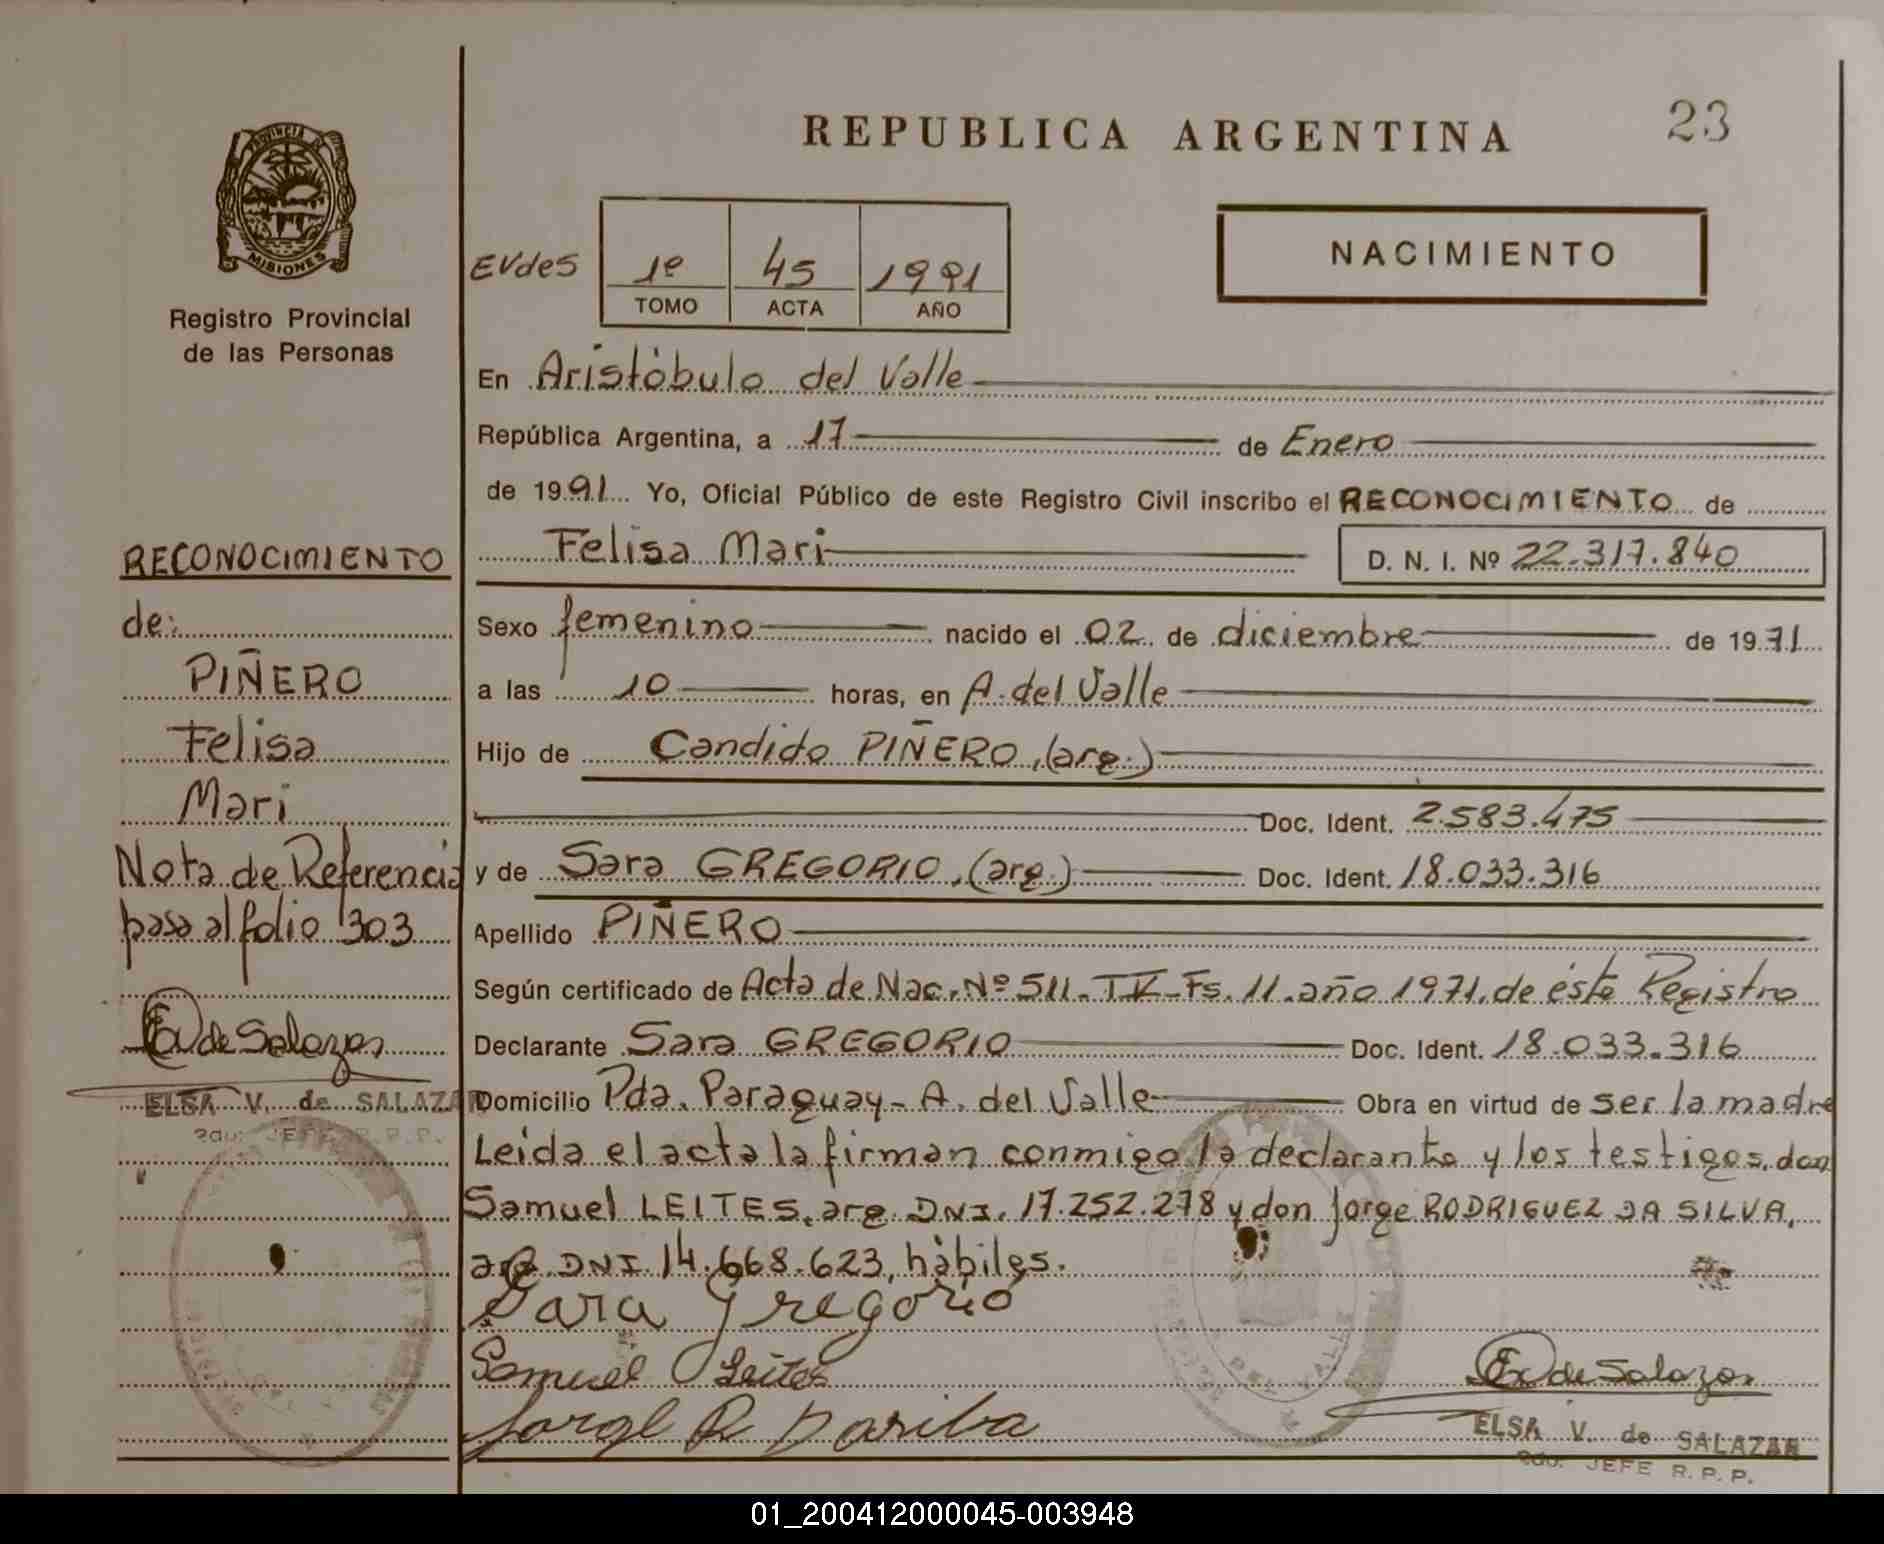 REPUBLICA ARGENTINA
23
PROVINCIA DE
MISIONES
Registro Provincial
de las Personas
EVdeS
1º 45 1991
TOMO ACTA AÑO
NACIMIENTO
En Aristòbulo del Valle
República Argentina, a 17 de Enero
de 1991 Yo, Oficial Público de este Registro Civil inscribo el RECONOCIMIENTO de
Felisa Mari D. N. I. Nº 22.317.840
Sexo femenino nacido el 02 de diciembre de 1971
a las 10 horas, en A. del Valle
Hijo de Candido PIÑERO, (arg.)
Doc. Ident. 2.583.475
y de Sara GREGORIO, (arg.) Doc. Ident. 18.033.316
Apellido PIÑERO
Según certificado de Acta de Nac. Nº 511. TV-Fs. 11. año 1971. de éste Registro
Declarante Sara GREGORIO Doc. Ident. 18.033.316
Domicilio Pda. Paraguay - A. del Valle Obra en virtud de ser la madre
Leida el acta la firman conmigo la declarante y los testigos, don
Samuel LEITES, arg. DNI. 17.252.278 y don Jorge RODRIGUEZ DA SILVA,
arg. DNI 14.668.623, hàbiles.
Sara Gregorio
Samuel Leites
Jorge R
EV de Salazar
ELSA V. de SALAZAR
2do. JEFE R. P. P.
RECONOCIMIENTO
de:
PIÑERO
Felisa
Mari
Nota de Referencia
pasa al folio 303
EV de Salazar
ELSA V. de SALAZAR
2do. JEFE R. P. P.
01_200412000045-003948